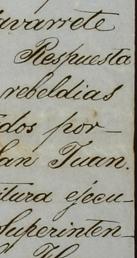 avarrete
Respuesta
rebeldias
idos por-
an Juan.
itura ejecu-
Superinten-